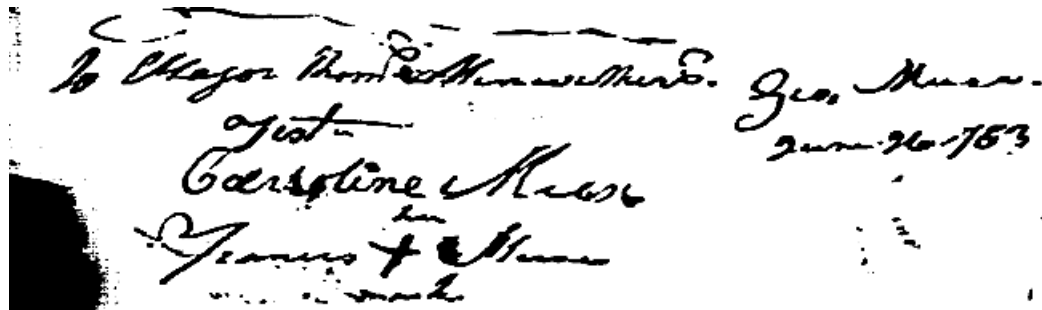 To Major Thom.s Meriwether. Geo. Muse.
Test June 26 1753
Caroline Muse
her
Frances + Muse
mark